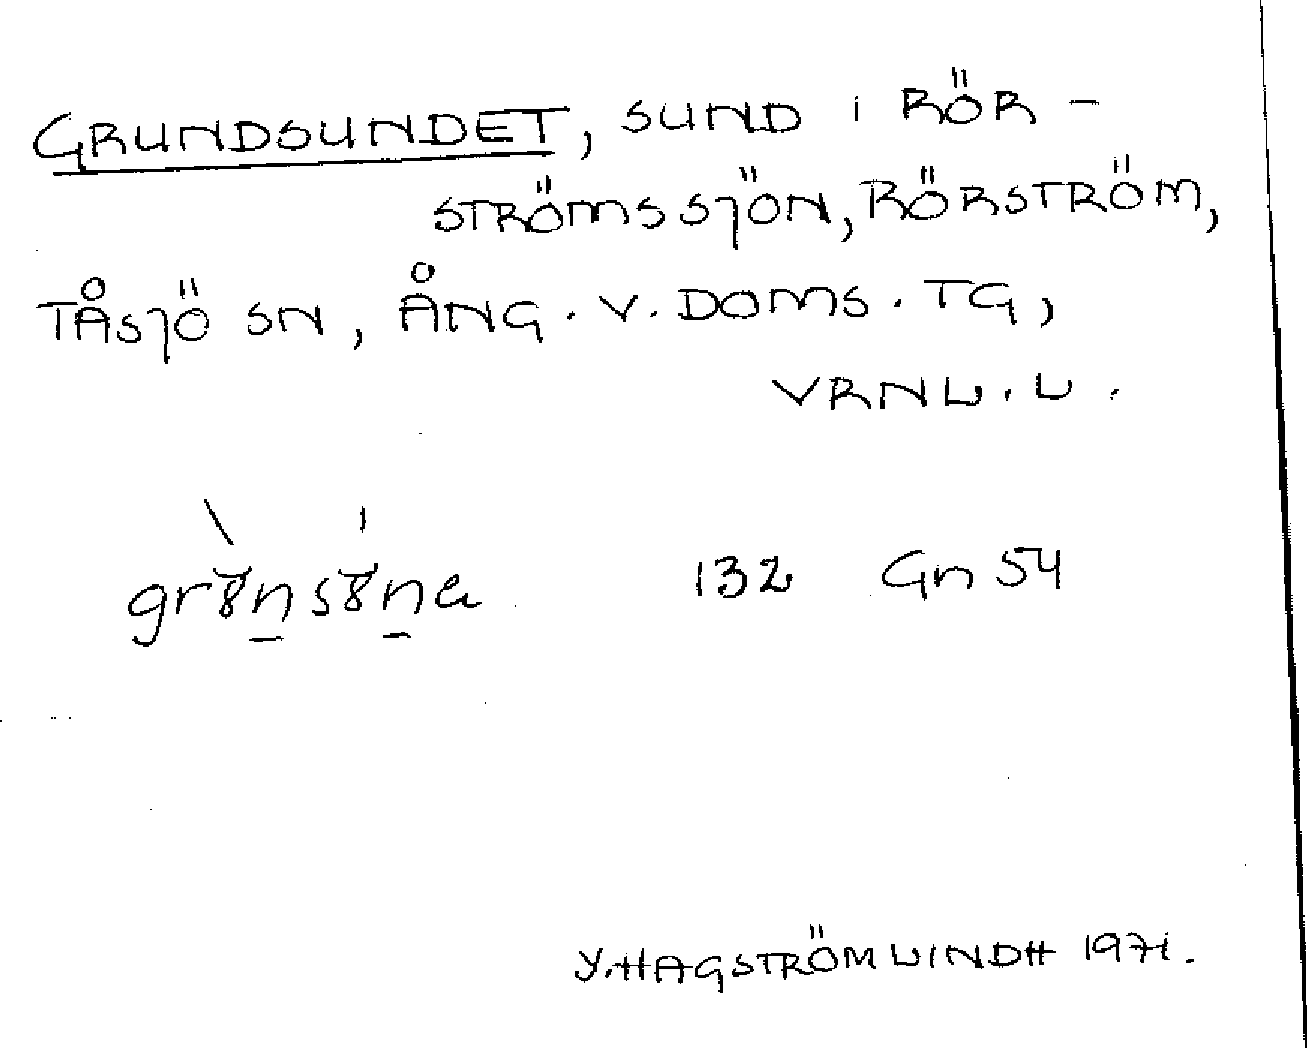 GRUNDSUNDET, SUND I RÖR-
STRÖMSSJÖN, RÖRSTRÖM,
TÅSJÖ SN, ÅNG. V. DOMS. TG,
VRNL. L.
132 Gn 54
Y. HAGSTRÖM LINDH 1971.